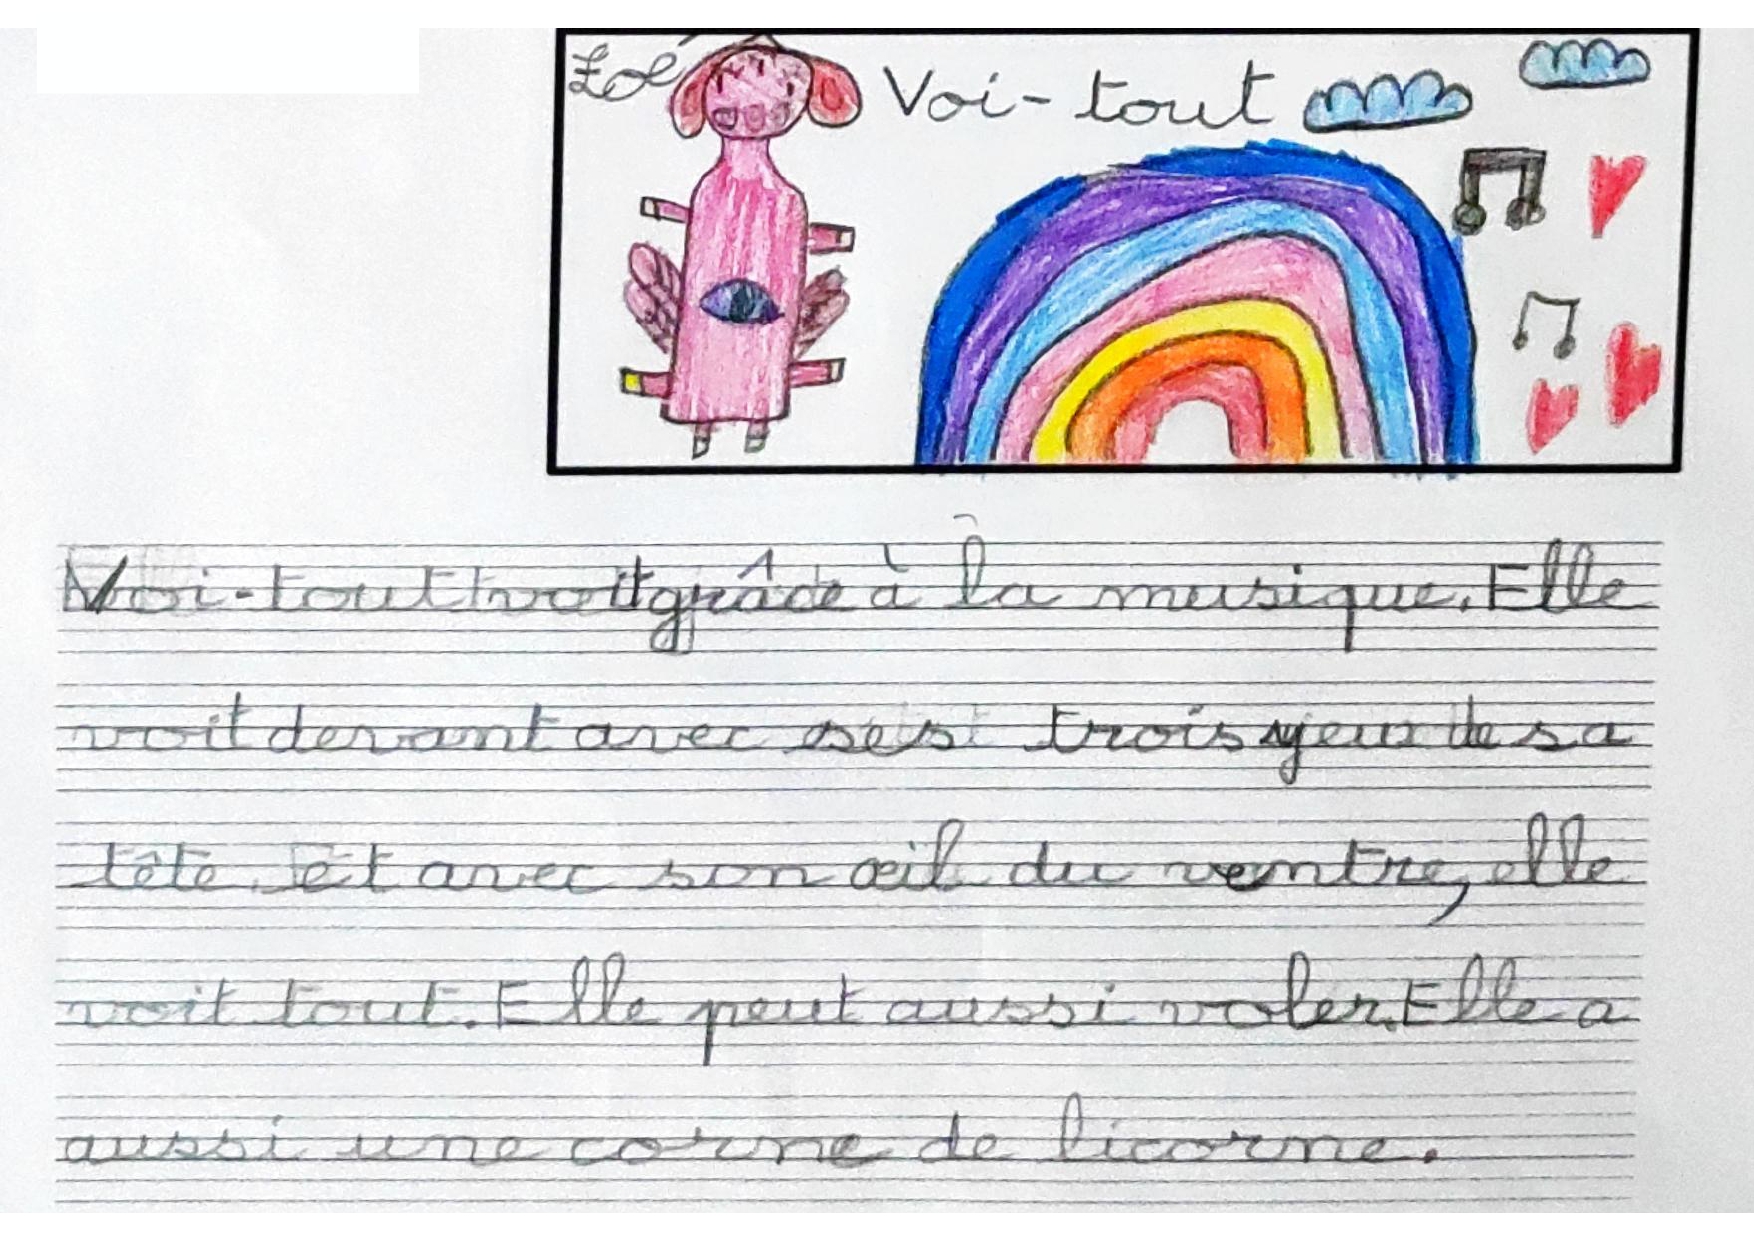 Zoé Voi-tout
Voi-tout voit grâce à la musique. Elle
voit devant avec ses trois yeux de sa
tête. Et avec son œil du ventre, elle
voit tout. Elle peut aussi voler. Elle a
aussi une corne de licorne.